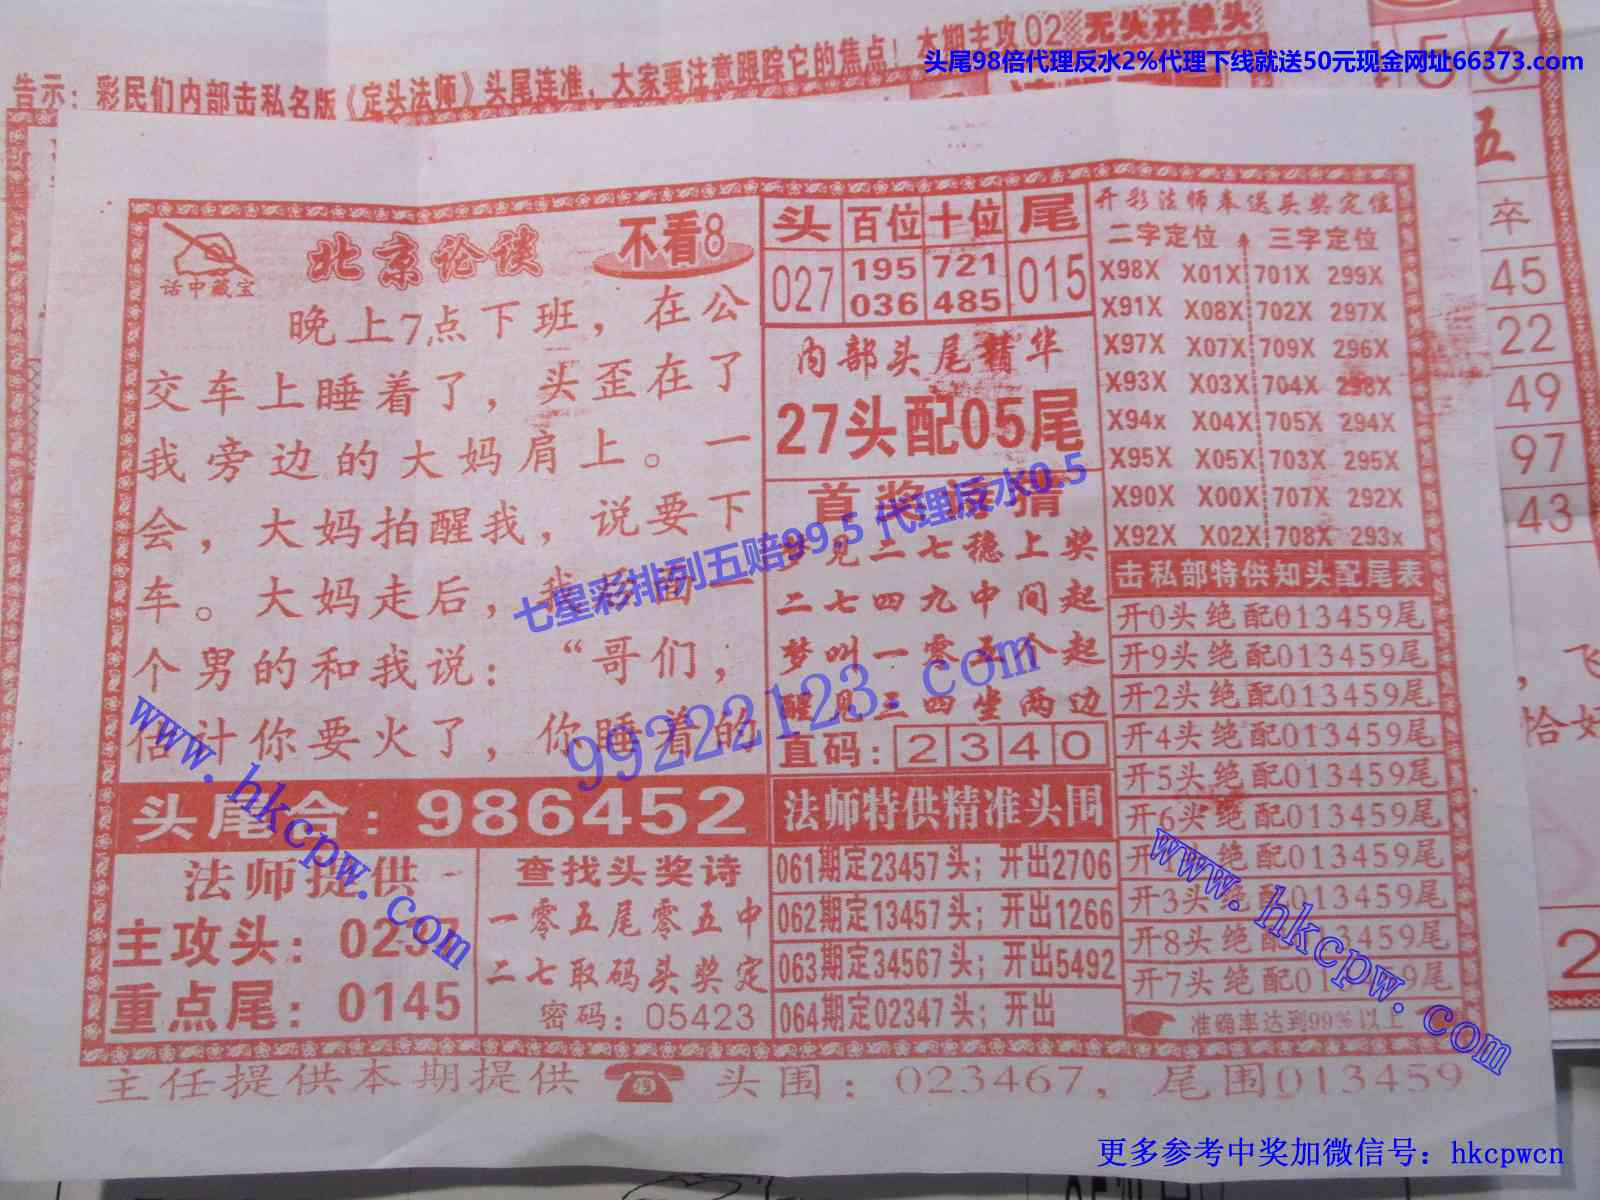 本期主攻02 无头开单头
头尾98倍代理反水2%代理下线就送50元现金网址66373.com
告示：彩民们内部击私名版《定头法师》头尾连准，大家要注意跟踪它的焦点！
5 6
五
卒
45
22
49
97
43
，飞
恰好
2
话中藏宝
北京论谈
不看8
晚上7点下班，在公
交车上睡着了，头歪在了
我旁边的大妈肩上。一
会，大妈拍醒我，说要下
车。大妈走后，我
个男的和我说：“哥们，
估计你要火了，你睡着的
头尾合：986452
法师提供
主攻头：0237
重点尾：0145
查找头奖诗
一零五尾零五中
二七取码头奖定
密码：05423
头 百位 十位 尾
027 195 721 015
036 485
内部头尾精华
27头配05尾
首奖诗猜
梦见二七稳上奖
二七四九中间起
梦叫一零五个起
醒见三四坐两边
直码：2 3 4 0
法师特供精准头围
061期定23457头；开出2706
062期定13457头；开出1266
063期定34567头；开出5492
064期定02347头；开出
开彩法师奉送头奖定位
二字定位 三字定位
X98X X01X 701X 299X
X91X X08X 702X 297X
X97X X07X 709X 296X
X93X X03X 704X 298X
X94x X04X 705X 294X
X95X X05X 703X 295X
X90X X00X 707X 292X
X92X X02X 708X 293x
击私部特供知头配尾表
开0头绝配013459尾
开9头绝配013459尾
开2头绝配013459尾
开4头绝配013459尾
开5头绝配013459尾
开6头绝配013459尾
开1头绝配013459尾
开3头绝配013459尾
开8头绝配013459尾
开7头绝配013459尾
准确率达到99%以上
主任提供本期提供 头围：023467，尾围013459
七星彩排列五赔99.5 代理反水0.5
99222123.com
www.hkcpw.com
www.hkcpw.com
更多参考中奖加微信号：hkcpwcn